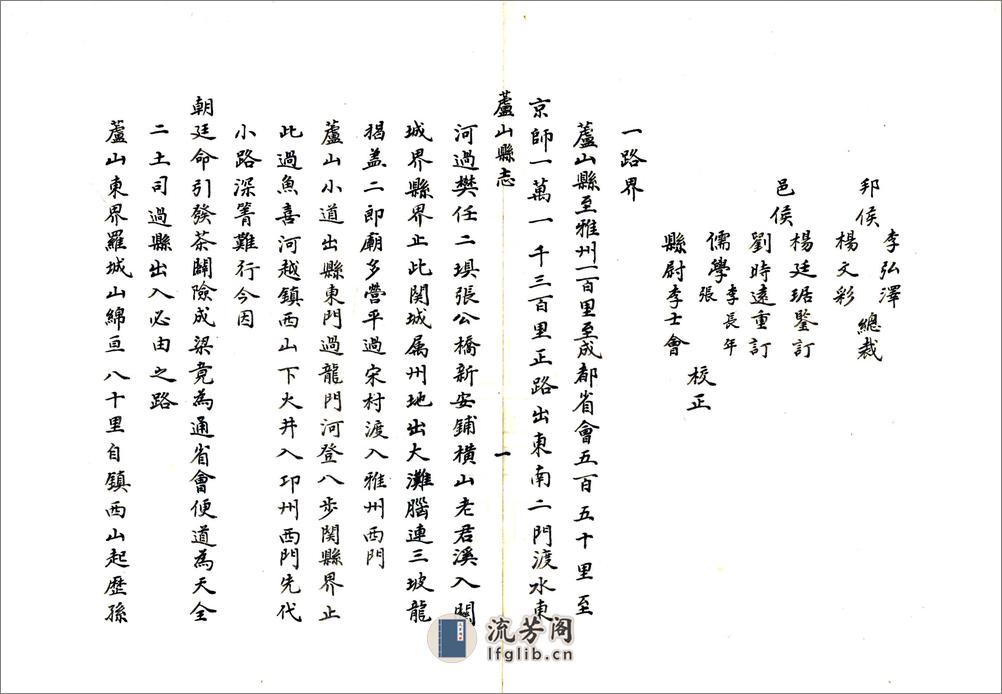 李弘澤
邦侯
楊文彩
總裁
楊廷琚鑒訂
邑侯
劉時遠重訂
李長年
儒學
張
縣尉李士會
校正
一路界
蘆山縣至雅州一百里至成都省會五百五十里至
京師一萬一千三百里正路出東南二門渡水東
蘆山縣志
一
河過樊任二垻張公橋新安鋪橫山老君溪入關
城界縣界止此関城属州地出大灘腦連三坡龍
揚盖二郎廟多營平過宋村渡入雅州西門
蘆山小道出縣東門過龍門河登八步関縣界止
此過魚喜河越鎮西山下火井入邛州西門先代
小路深箐難行今因
朝廷命引發茶闢險成梁竟為通省會便道為天全
二土司過縣出入必由之路
蘆山東界羅城山綿亘八十里自鎮西山起歷孫
流芳阁
lfglib.cn